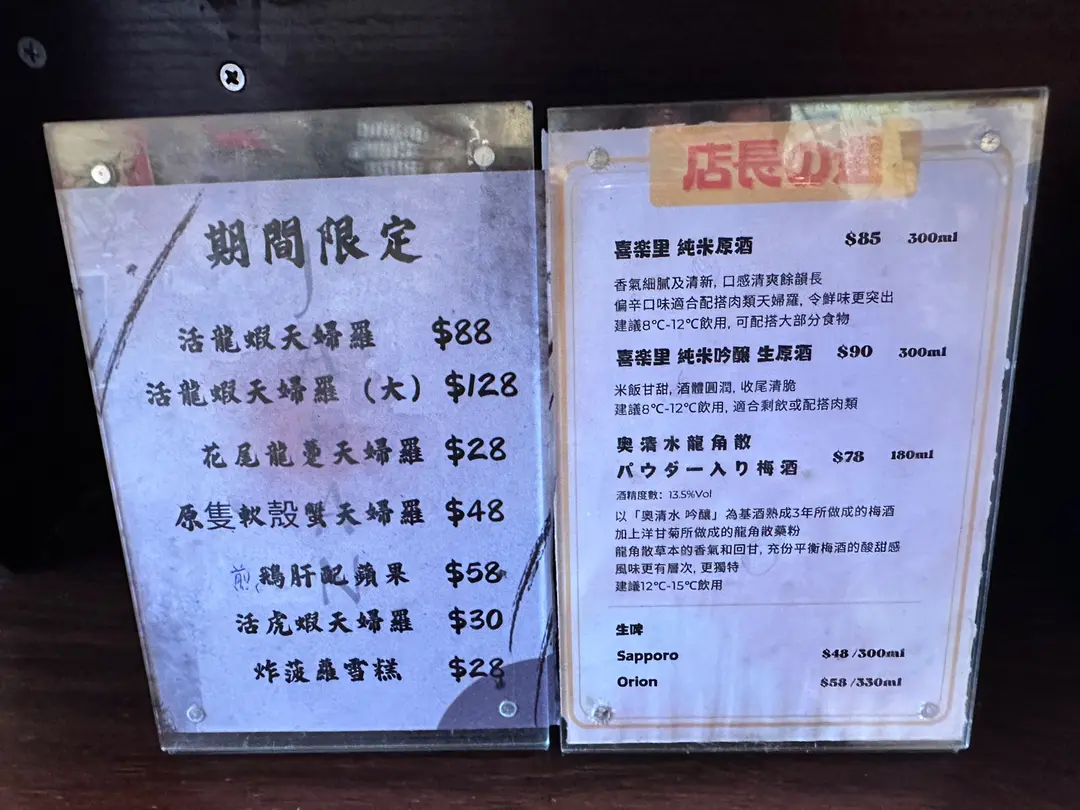 期間限定
活龍蝦天婦羅 $88
活龍蝦天婦羅（大） $128
花尾龍躉天婦羅 $28
原隻軟殼蟹天婦羅 $48
煎鵝肝配蘋果 $58
活虎蝦天婦羅 $30
炸菠蘿雪糕 $28
店長の
喜楽里 純米原酒 $85 300ml
香氣細膩及清新, 口感清爽餘韻長
偏辛口味適合配搭肉類天婦羅, 令鮮味更突出
建議8℃-12℃飲用, 可配搭大部分食物
喜楽里 純米吟醸 生原酒 $90 300ml
米飯甘甜, 酒體圓潤, 收尾清脆
建議8℃-12℃飲用, 適合剩飲或配搭肉類
奥清水龍角散
パウダー入り梅酒 $78 180ml
酒精度數：13.5%Vol
以「奧清水 吟釀」為基酒熟成3年所做成的梅酒
加上洋甘菊所做成的龍角散藥粉
龍角散草本的香氣和回甘, 充份平衡梅酒的酸甜感
風味更有層次, 更獨特
建議12℃-15℃飲用
生啤
Sapporo $48/300ml
Orion $58/330ml